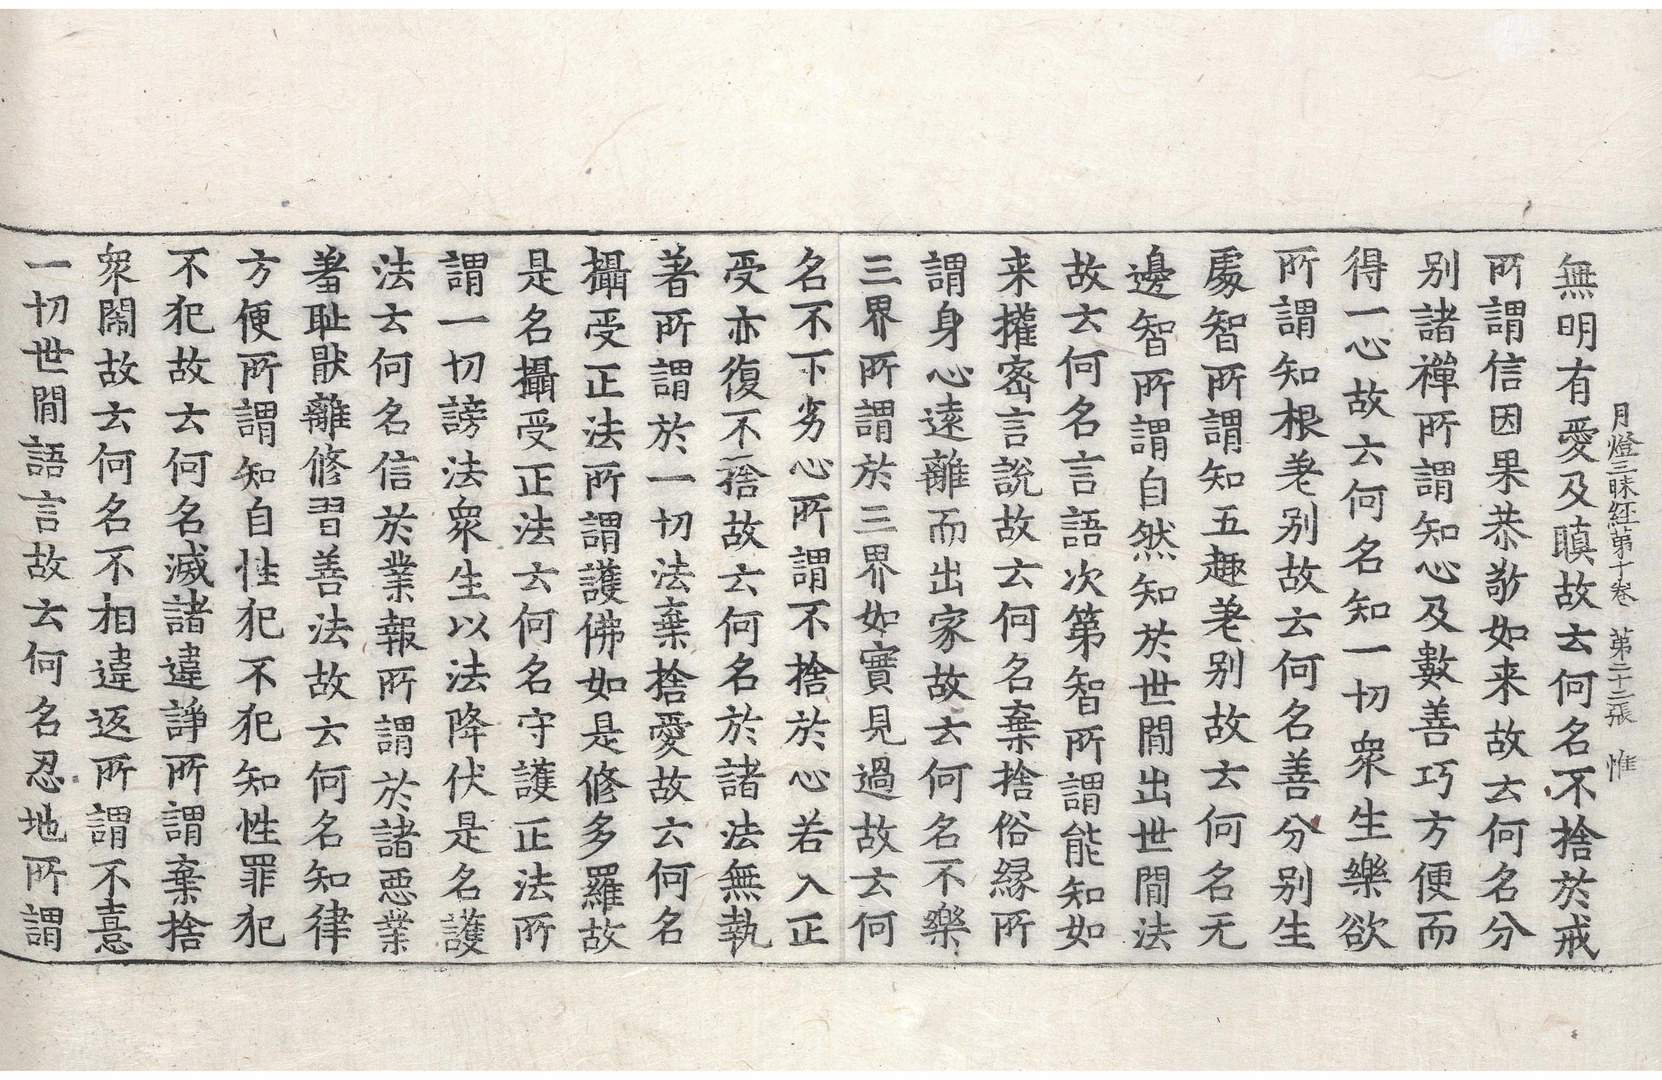 月燈三昧経第十卷　第二十二張　惟
無明有愛及瞋故云何名不捨於戒
所謂信因果恭敬如来故云何名分
别諸禪所謂知心及數善巧方便而
得一心故云何名知一切衆生樂欲
所謂知根差别故云何名善分别生
處智所謂知五趣差别故云何名无
邊智所謂自然知於世間出世間法
故云何名言語次第智所謂能知如
来權密言說故云何名棄捨俗緣所
謂身心遠離而出家故云何名不樂
三界所謂於三界如實見過故云何
名不下劣心所謂不捨於心若入正
受亦復不捨故云何名於諸法無執
著所謂於一切法棄捨愛故云何名
攝受正法所謂護佛如是修多羅故
是名攝受正法云何名守護正法所
謂一切謗法衆生以法降伏是名護
法云何名信於業報所謂於諸惡業
羞恥猒離修習善法故云何名知律
方便所謂知自性犯不犯知性罪犯
不犯故云何名滅諸違諍所謂棄捨
衆閙故云何名不相違返所謂不憙
一切世間語言故云何名忍地所謂